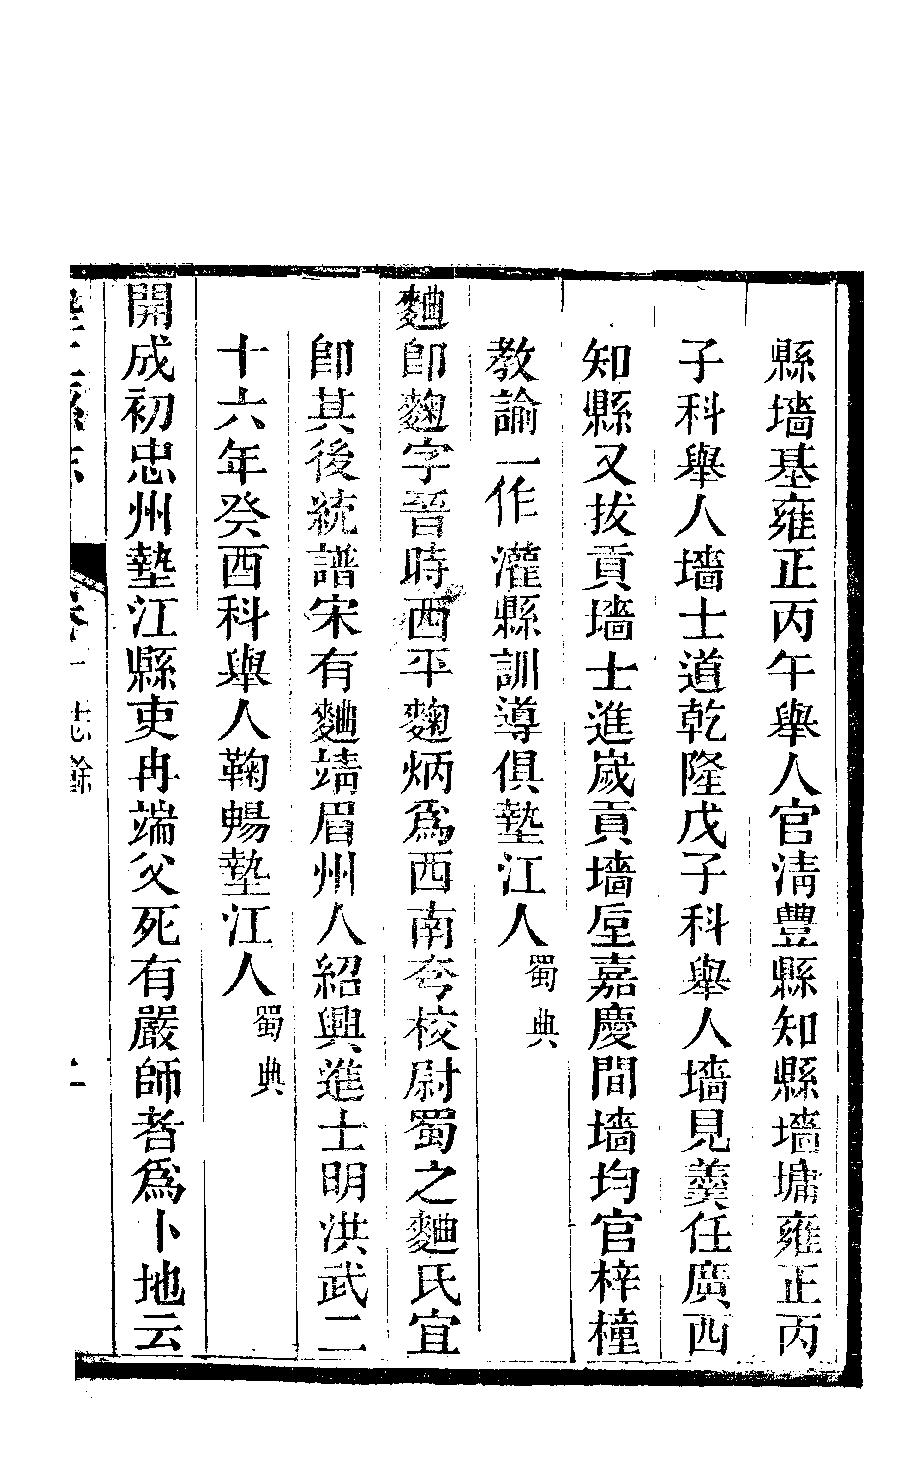 縣墻基雍正丙午舉人官清豐縣知縣墻墉雍正丙
子科舉人墻士道乾隆戊子科舉人墻見羹任廣西
知縣又拔貢墻士進嵗貢墻垕嘉慶間墻均官梓橦
教諭一作灌縣訓導俱墊江人蜀典
麯卽麴字晉時西平麴炳爲西南夸校尉蜀之麯氏宜
卽其後統譜宋有麯靖眉州人紹興進士明洪武二
十六年癸酉科舉人鞠暢墊江人蜀典
開成初忠州墊江縣吏冉端父死有嚴師者爲卜地云
志餘